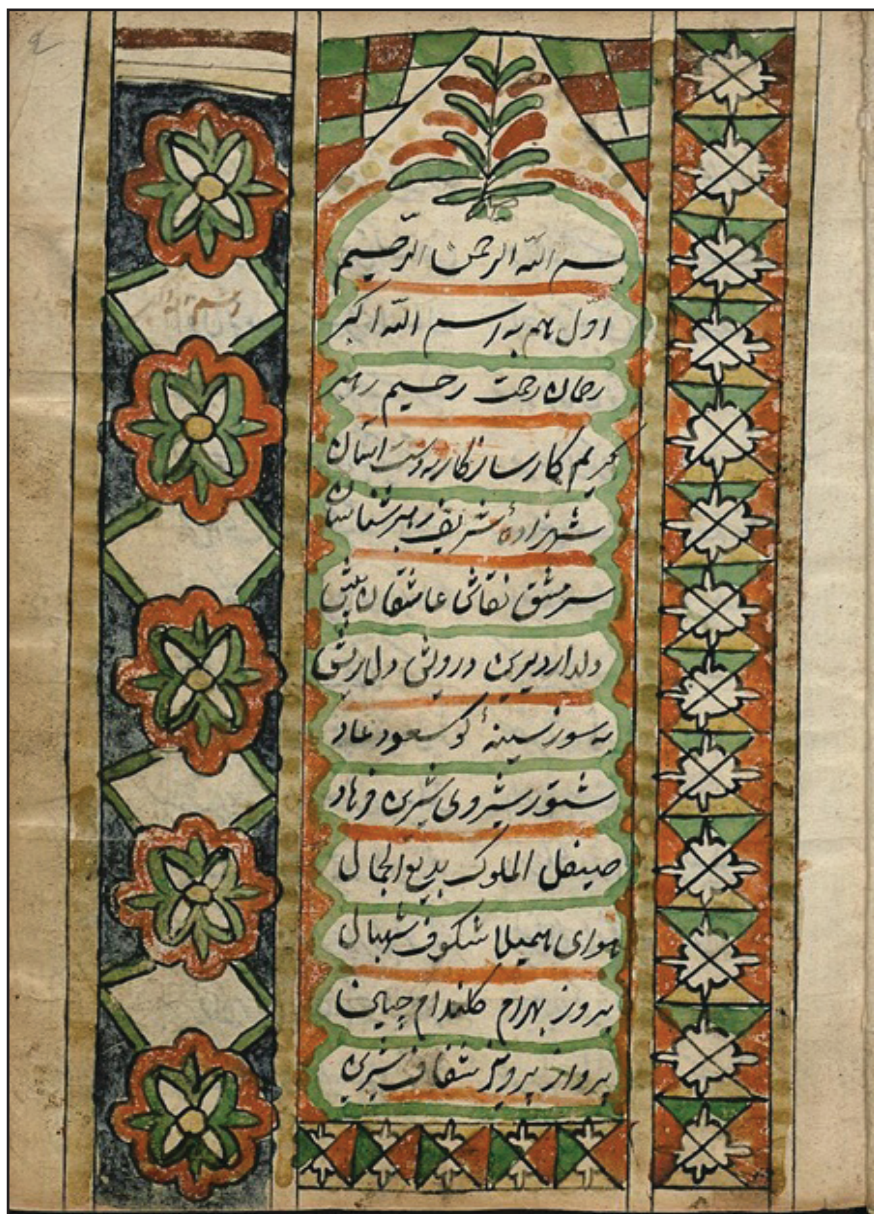 بسم الله الرحمن الرحیم
اول هم به اسم الله اکبر
رحمان رحمت رحیم رهبر
کریم کارساز کار
شهزادهٔ شریف رهبر شناسان
سرمشق نقاش عاشقان پیش
دلدار دیرین درویش دل ریش
به سوز سینهٔ کو سعود عاد
شیروی شیرین فرهاد
صیفل الملوک بدیع الجمال
هوای همیلا شکوف شهبال
بروز بهرام گلندام چین
پرواز پرویز شفاف شیرین